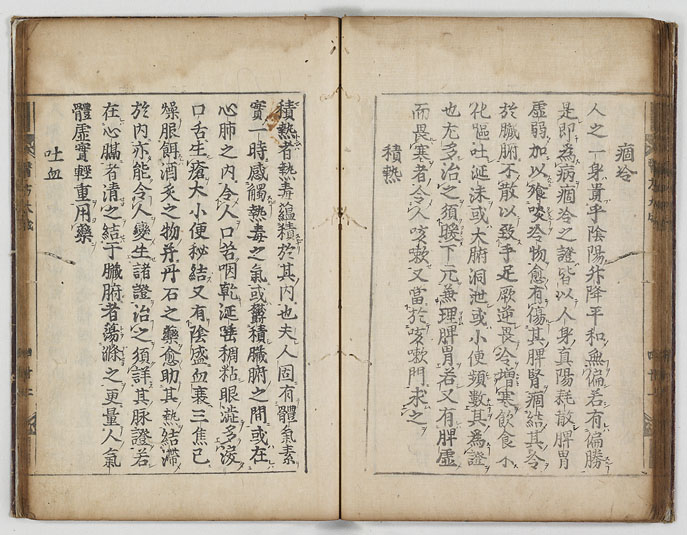 痼冷
人之一身貴乎陰陽升降平和無偏若有偏勝
是即為病痼冷之證皆以人身真陽耗散脾胃
虛弱加以飡啖冷物愈有傷其脾腎痼結其冷
於臟腑不散以致手足厥逆畏冷增寒飲食不
化嘔吐涎沫或大腑洞泄或小便頻數其為證
也尤多治之須暖下元兼理脾胃若又有脾虛
而畏寒者令人咳嗽又當於咳嗽門求之
積熱
積熱者熱毒蘊積於其內也夫人固有體氣素
實一時感觸熱毒之氣或欝積臟腑之間或在
心肺之內令人口苦咽乾涎唾稠粘眼澁多淚
口舌生瘡大小便秘結又有陰盛血衰三焦已
燥服餌消爻之物并丹石之藥愈助其熱結滯
於內亦能令人變生諸證治之須詳其脉證若
在心膈者清之結于臟腑者蕩滌之更量人氣
體虛實輕重用藥
吐血